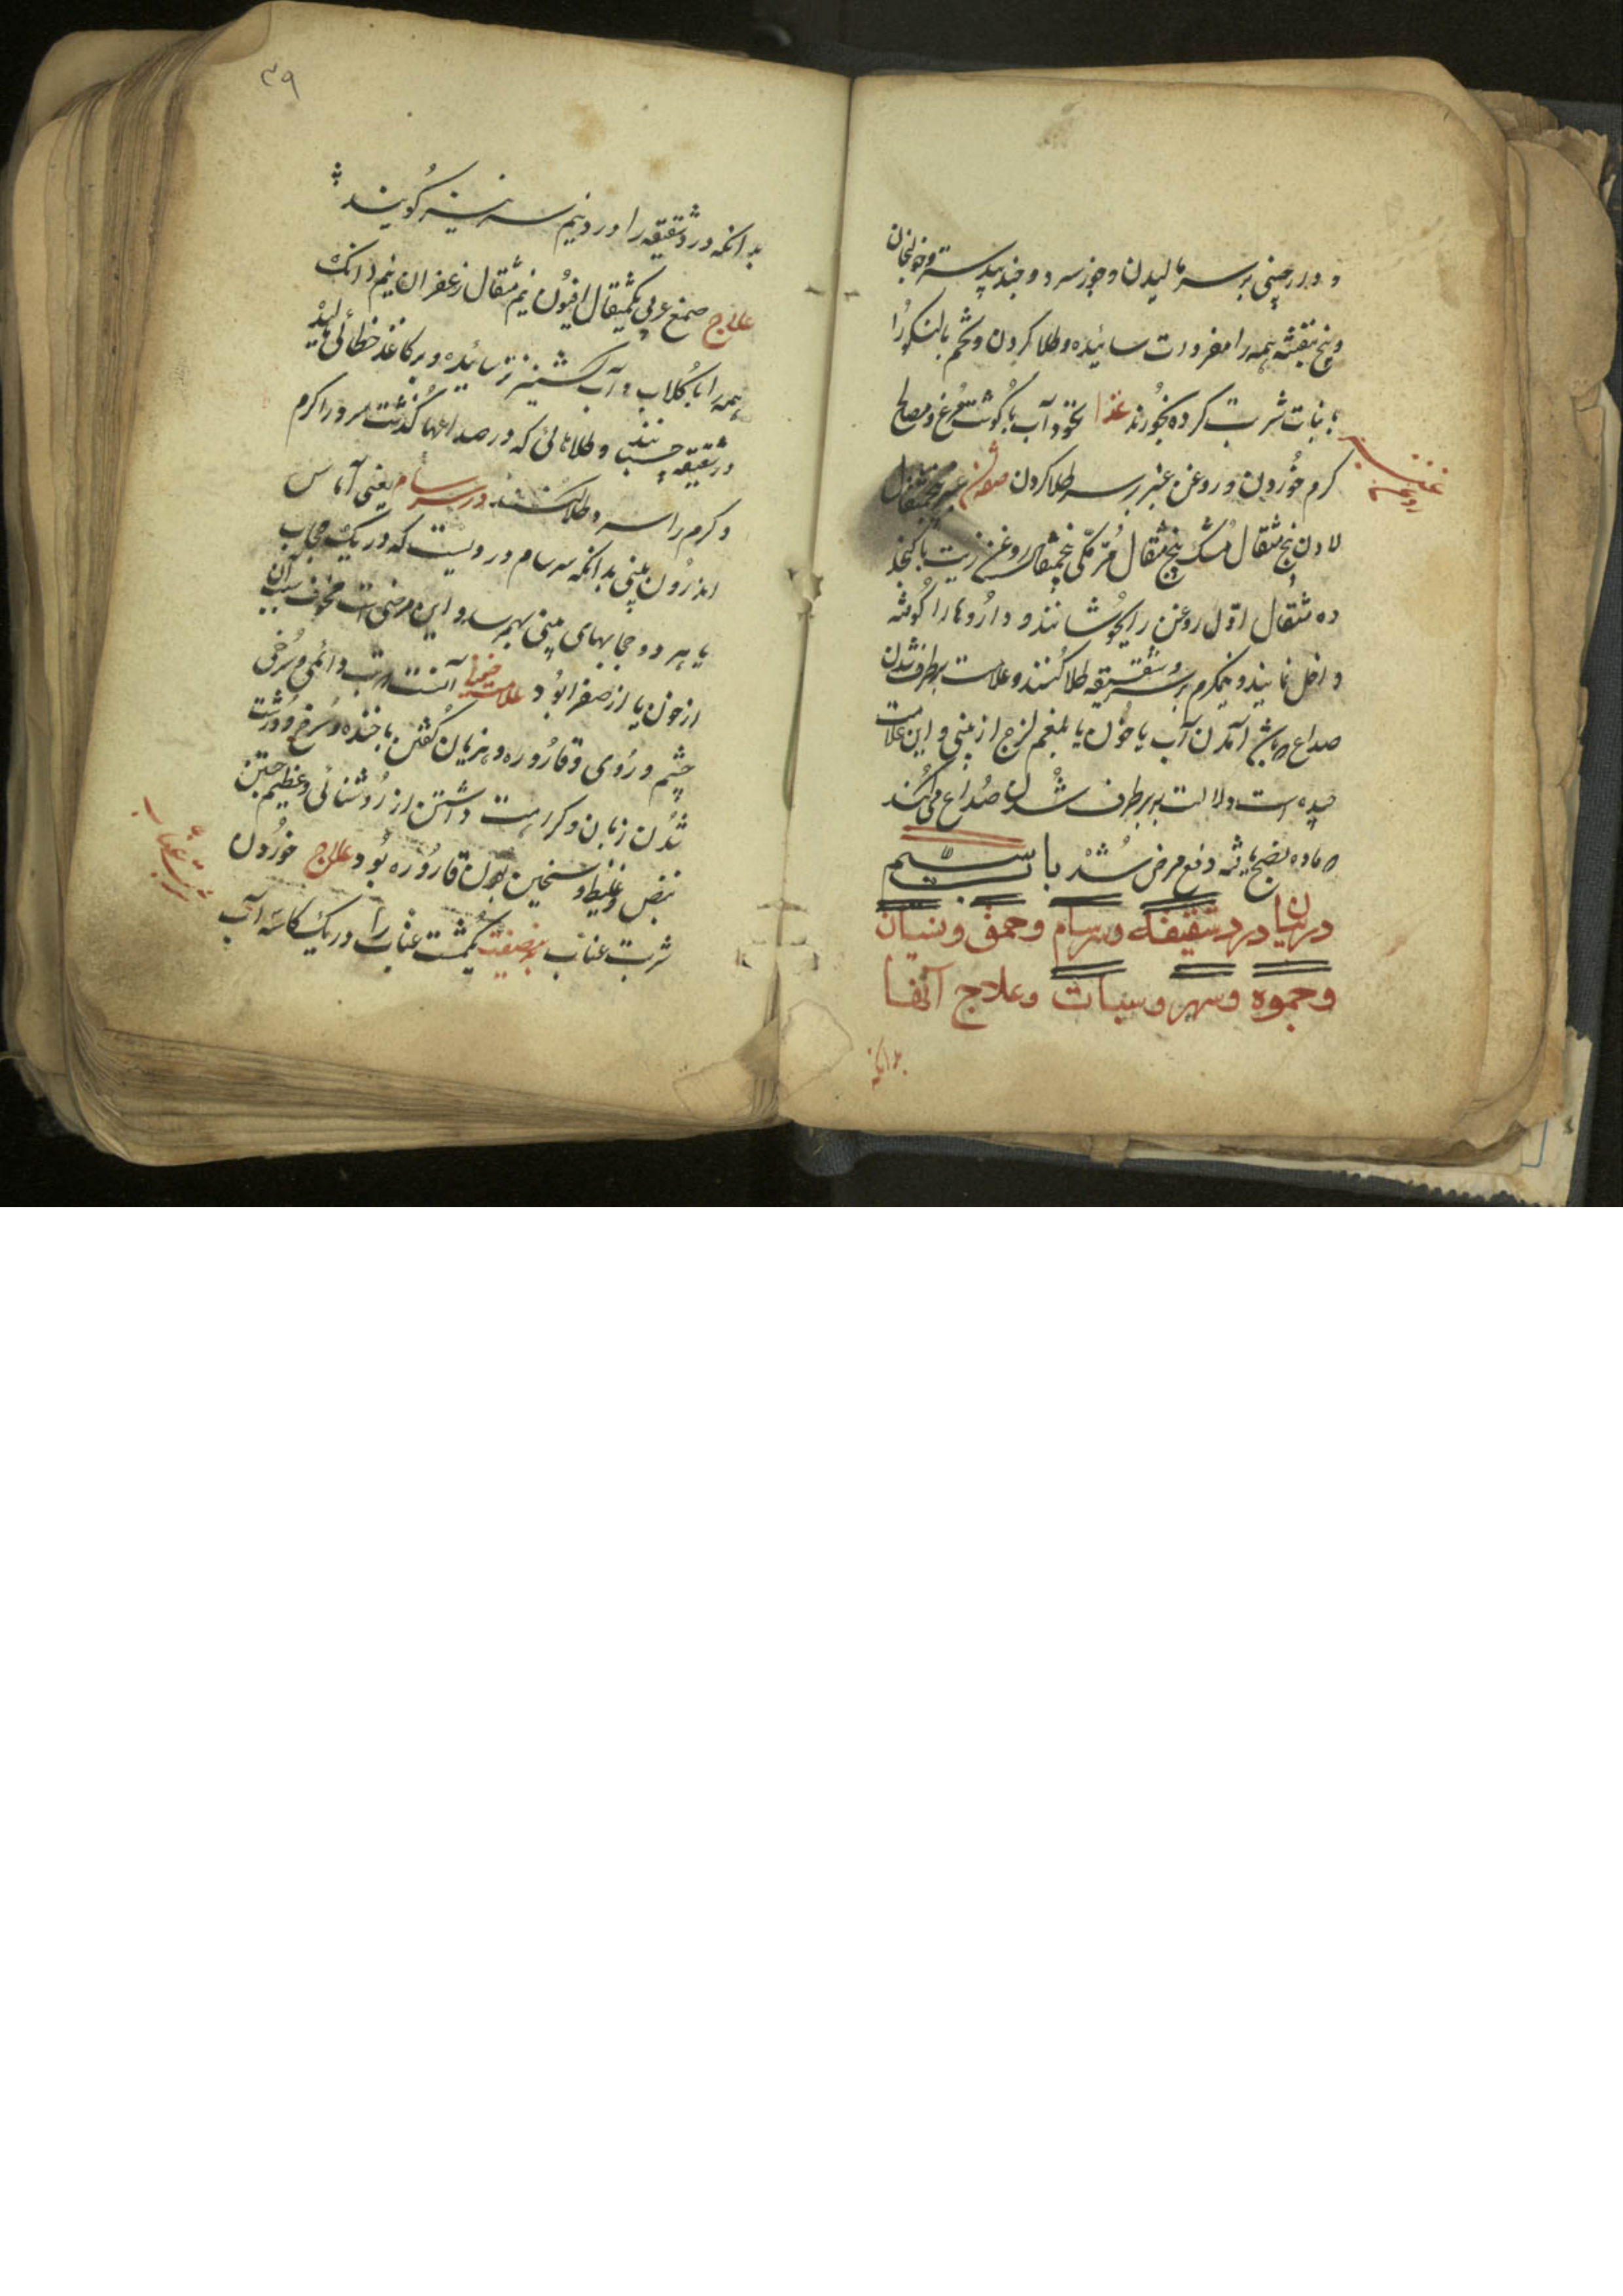 و دارچینی بر سر مالیدن و جوز سرد و جندبیدستر و خولنجان
و بنج بنفشه همه را مفردات سائیده و طلا کردن و تخم بالنکو را
با نبات شربت کرده بخورند غذا نخود آب با گوشت مرغ و مصالح
کرم خوردن و روغن عنبر بر سر طلا کردن صفة آن عنبر پنجمثقال
روغن عنبر
لادن پنج مثقال مشک پنج مثقال مُرّ مکّی پنجمثقال روغن زیت یا کنجد
ده مثقال اوّل روغن را بجوشانند و داروها را کوفته
داخل نمایند و نیمکرم بر سر و شقیقه طلا کنند و علامت برطرف شدن
صداع آمدن آب یا خون یا بلغم لزج از بینی و این علامت
جیده است دلالت بر برطرف شدن صداع میکند
ماده بنضج یافته دفع مرض شد باب سیم
در بیان درد شقیقه و سرسام و حمق و نسیان
و جموه و سهر و سبات و علاج آنها
بدانکه
۳۹
بدانکه درد شقیقه را درد نیم سر نیز گویند
علاج صمغ عربی یکمثقال افیون نیم مثقال زعفران نیم دانک
همه را با گلاب و آب کشنیز تر سائیده و بر کاغذ خطائی مالیده
در شقیقه چسبانند و طلاهائی که در صداعها گذشت سرد را کرم
و کرم را سرد طلا کنند در سرسام یعنی آماس
اندرون بینی بدانکه سرسام ورمیست که در یک حجاب
یا هر دو حجابهای بینی بهم رسد و این مرضی است مخوف سبب آن
از خون یا از صفرا بود علامت آنست تب دائمی و سرخی
چشم و روی و قاروره و هزیان گفتن با خنده و سرخ و درشت
شدن زبان و کراهت داشتن از روشنائی و عظیم جستن
نبض و غلیظ و سنجین بودن قاروره بود علاج خوردن
شربت عناب
شربت عناب یکمشت عناب را در یک کاسه آب